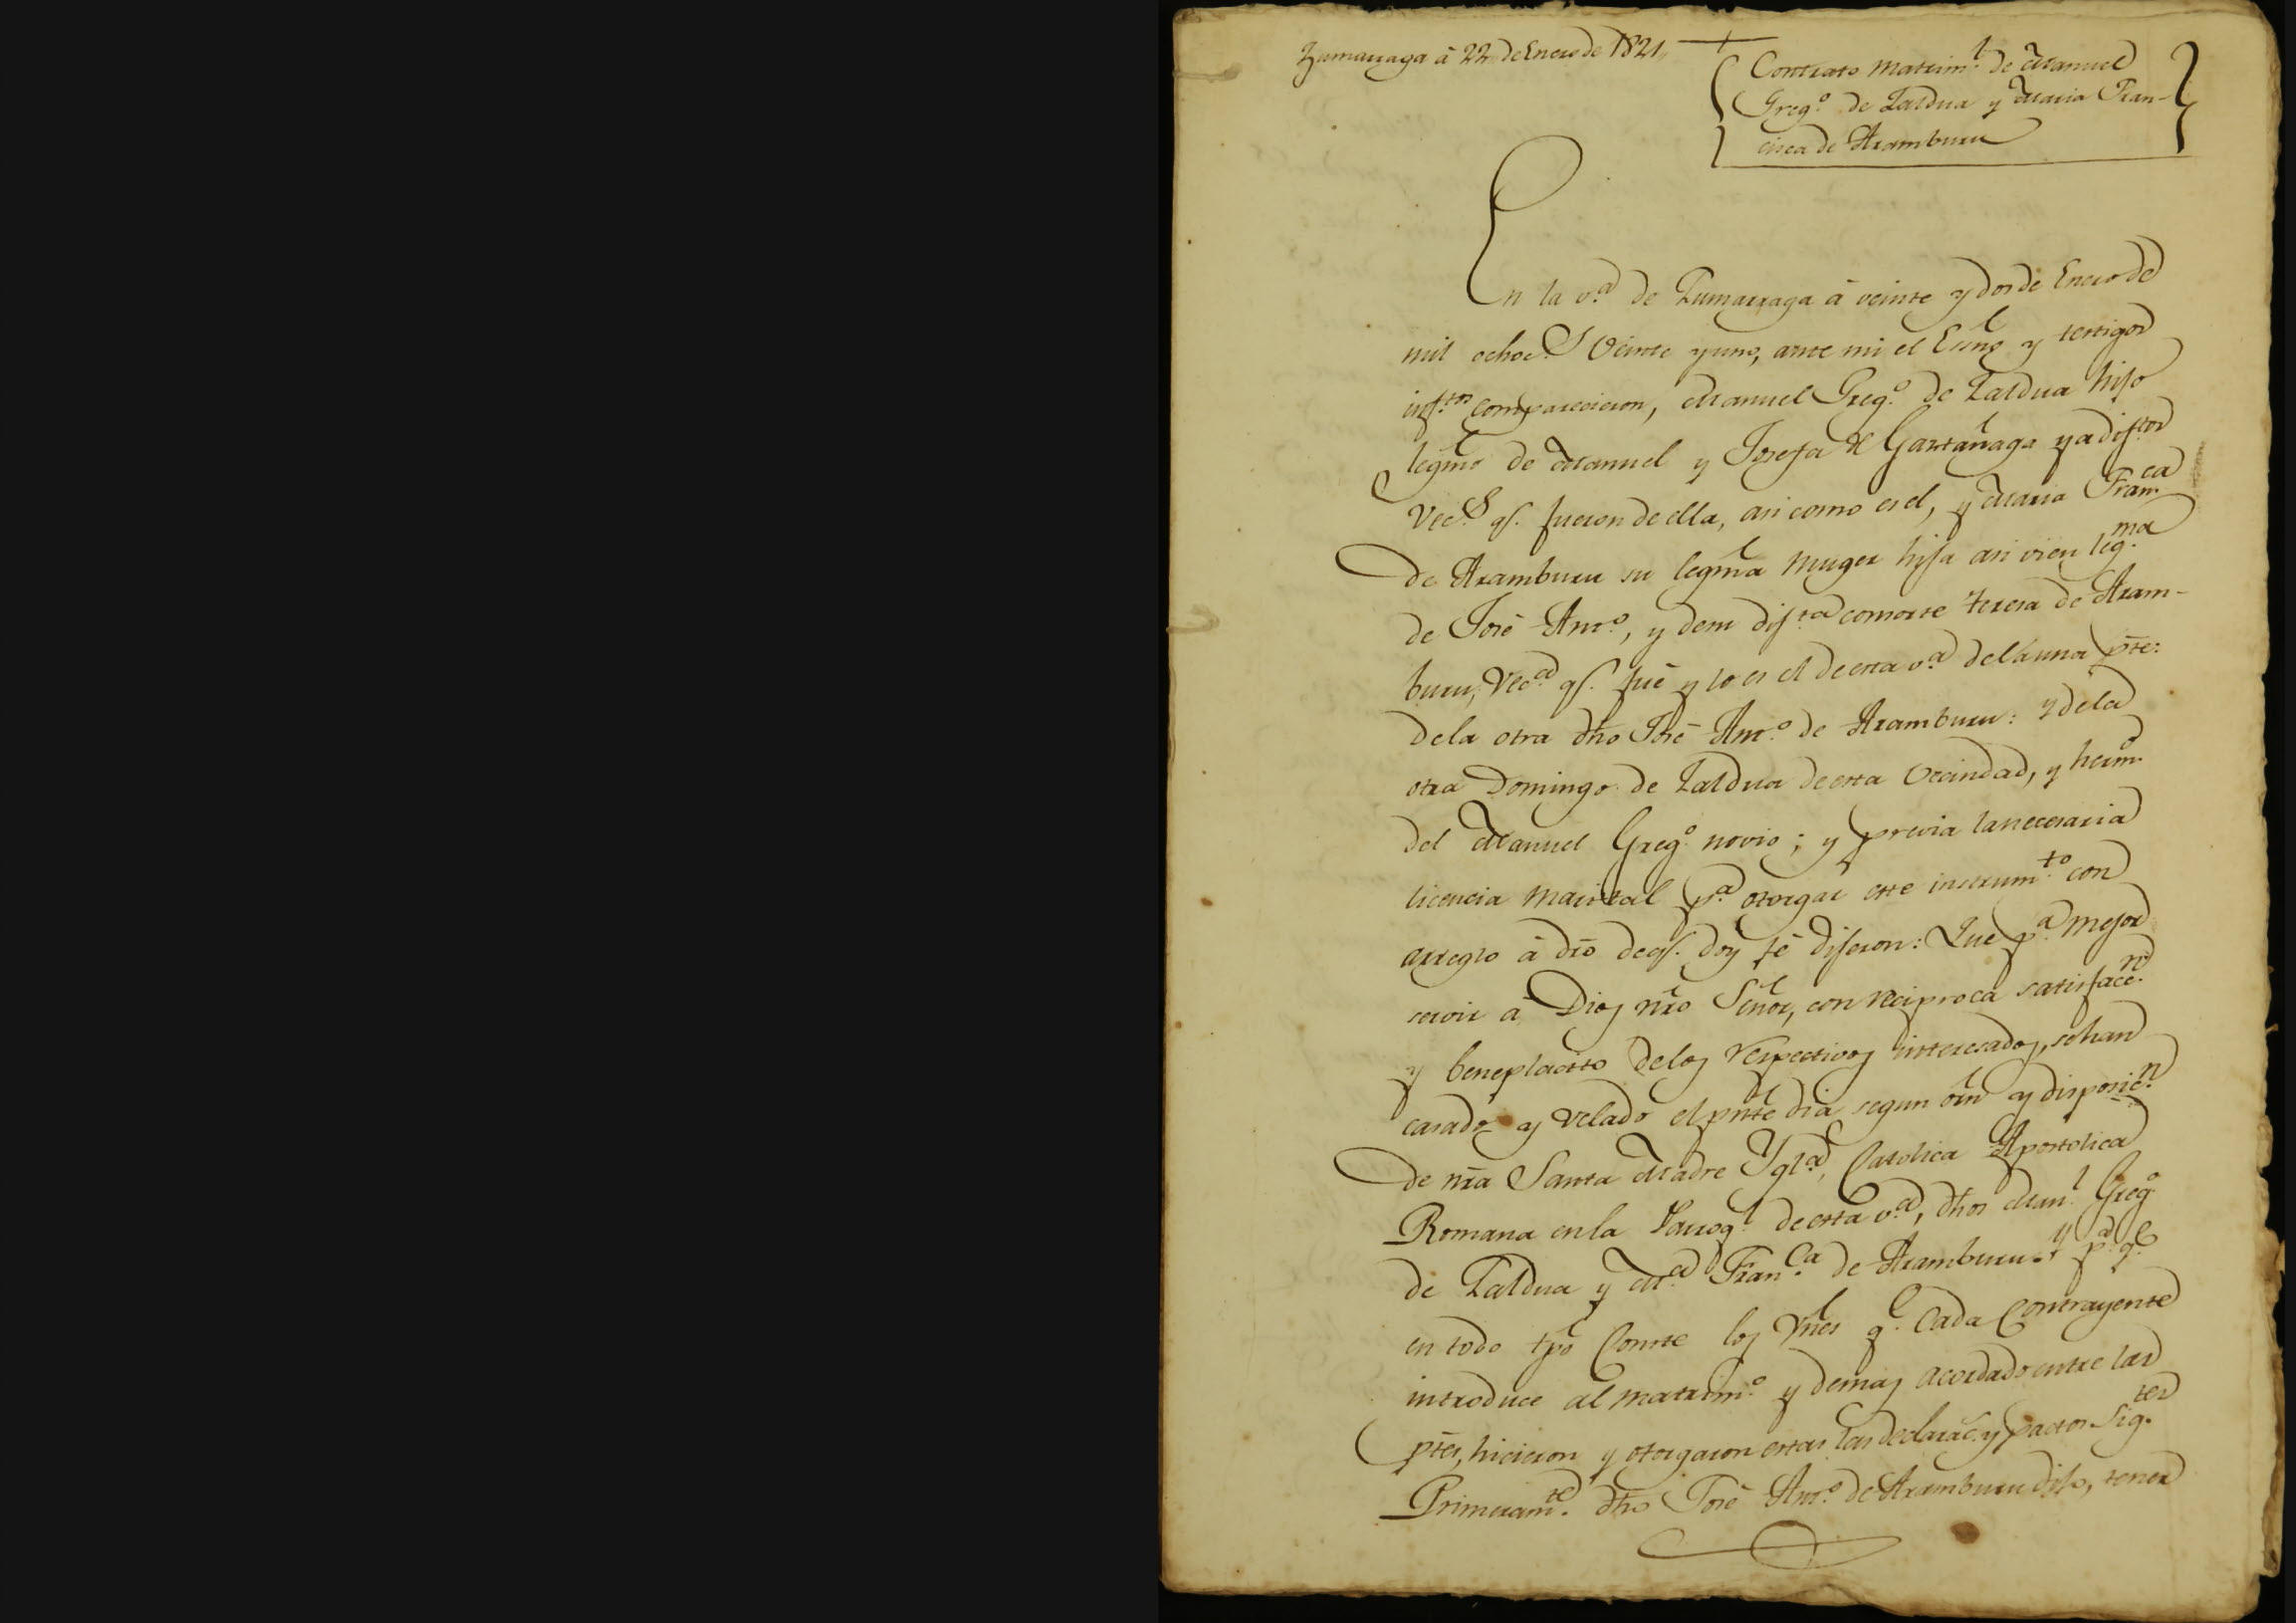 Zumarraga á 22 de Enero de 1821,,
Contrato Matrim.l de Manuel
Greg.o de Zaldua y Maria Fran-
cisca de Aramburu
En la v.a de Zumarraga á veinte y dos de Enero de
mil ochoc.s veinte y uno, ante mi el Esno y testigos
infr.tos comparecieron, Manuel Greg.o de Zaldua hijo
legmo de Manuel y Josefa de Gartañaga ya dif.tos
Vec.s q.e fueron de ella, asi como es el, y Maria Fran.ca
de Aramburu su legma Muger hija asi vien leg.ma
de José Ant.o, y de su dif.ta consorte Teresa de Aram-
buru, Vec.a q.e fué y lo es el de esta v.a de la una pte:
de la otra dho José Ant.o de Aramburu: y de la
otra Domingo de Zaldua de esta Vecindad, y herm.o
del Manuel Greg.o novio; y previa la necesaria
licencia Marital p.a otorgar este instrum.to con
arreglo á dro de q.e doy fé dijeron: Que p.a mejor
servir á Dios nro Señor, con reciproca satisfacc.n
y beneplacito de los respectivos interesados, se han
casado y velado el pnte dia segun orn y disposic.n
de nra Santa Madre Ygl.a, Catolica Apostolica
Romana en la Parroq.l de esta v.a, dhos Man.l Greg.o
de Zaldua y M.a Fran.ca de Aramburu. Y p.a q.e
en todo tpo Conste los Vnes q.e Cada Contrayente
introduce al matrim.o y demas acordado entre las
ptes, hicieron y otorgaron estas las declarac.s y pactos sig.tes
Primeram.te dho José Ant.o de Aramburu dijo, tener